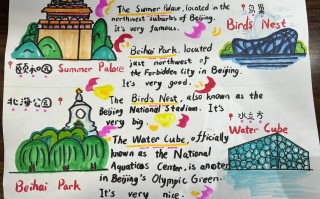 The Summer Palace, located in the
northwest suburbs of Beijing.
It's very famous.
鸟巢
Bird's Nest
颐和园
Summer Palace
Beihai Park, located
just northwest of
the Forbidden City in Beijing.
It's very good.
北海公园
The Bird's Nest, also known as the
Beijing National Stadium. It's
very big.
水立方
Water Cube
The Water Cube, officially
known as the National
Aquatics Center, is another
in Beijing's Olympic Green.
It's very nice.
Beihai Park